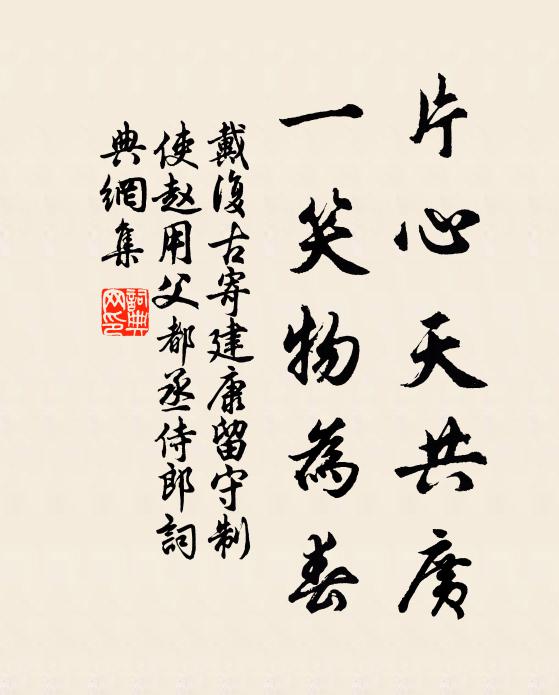 片心天共廣
一笑物為春
戴復古寄建康留守制
使赵用父都丞侍郎詞
典網集
詞典网印